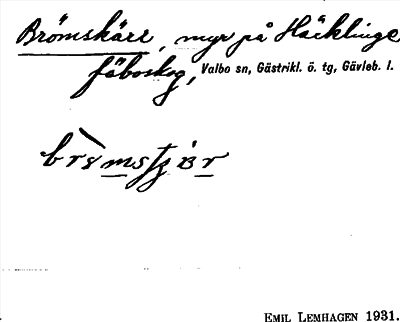 Brömskäre, myr på Häcklinge
fäboskog, Valbo sn, Gästrikl. ö. tg, Gävleb. l.
EMIL LEMHAGEN 1931.